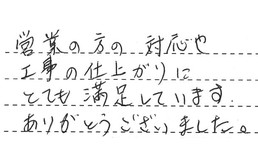 営業の方の 対応や
工事の仕上がりに
とても 満足しています.
ありがとうございました。